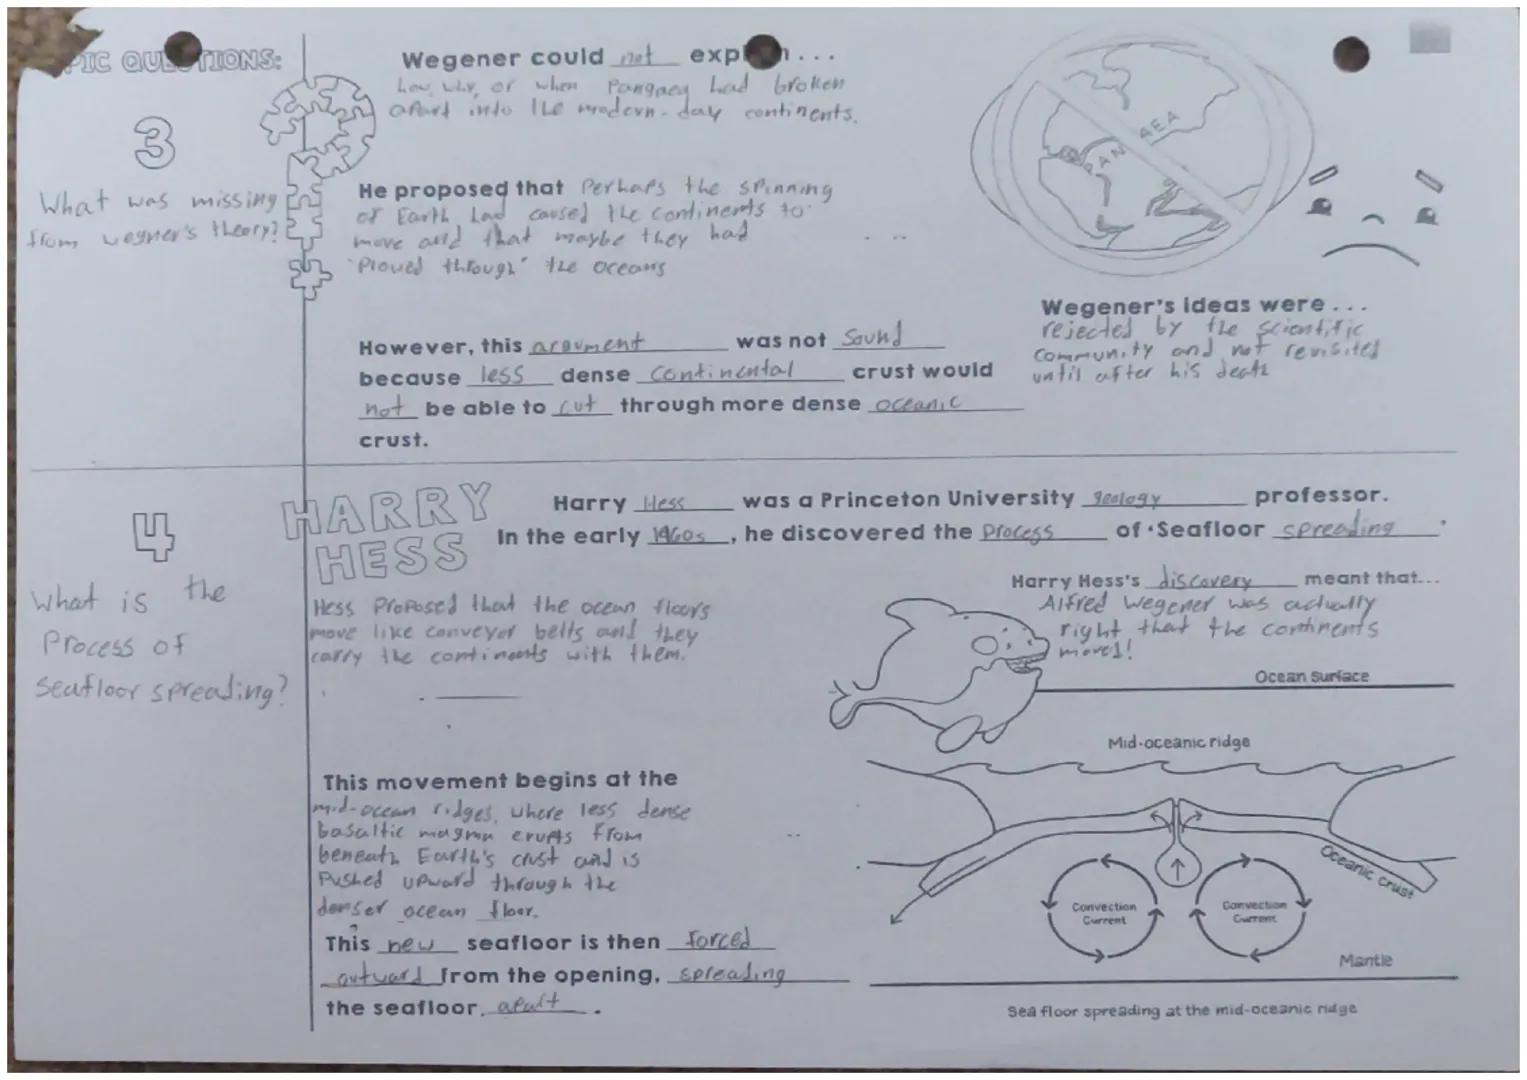 PIC QUESTIONS:
3
What was missing
from wegner's theory?
Wegener could not explain...
how, why, or when Pangaea had broken
apart into the modern-day continents.
He proposed that Perhaps the spinning
of Earth had caused the continents to
move and that maybe they had
"Plowed through" the oceans
However, this argument was not sound
because less dense continental crust would
not be able to cut through more dense oceanic
crust.
PANGAEA
Wegener's ideas were...
rejected by the scientific
community and not revisited
until after his death
4
What is the
Process of
seafloor spreading?
HARRY
HESS
Harry Hess was a Princeton University geology professor.
In the early 1960s, he discovered the Process of Seafloor spreading.
Hess Proposed that the ocean floors
move like conveyor belts and they
carry the continents with them.
Harry Hess's discovery meant that...
Alfred Wegener was actually
right that the continents
moved!
Ocean Surface
Mid-oceanic ridge
This movement begins at the
mid-ocean ridges, where less dense
basaltic magma erupts from
beneath Earth's crust and is
Pushed upward through the
denser ocean floor.
This new seafloor is then forced
outward from the opening, spreading
the seafloor apart.
Oceanic crust
Convection
Current
Convection
Current
Mantle
Sea floor spreading at the mid-oceanic ridge